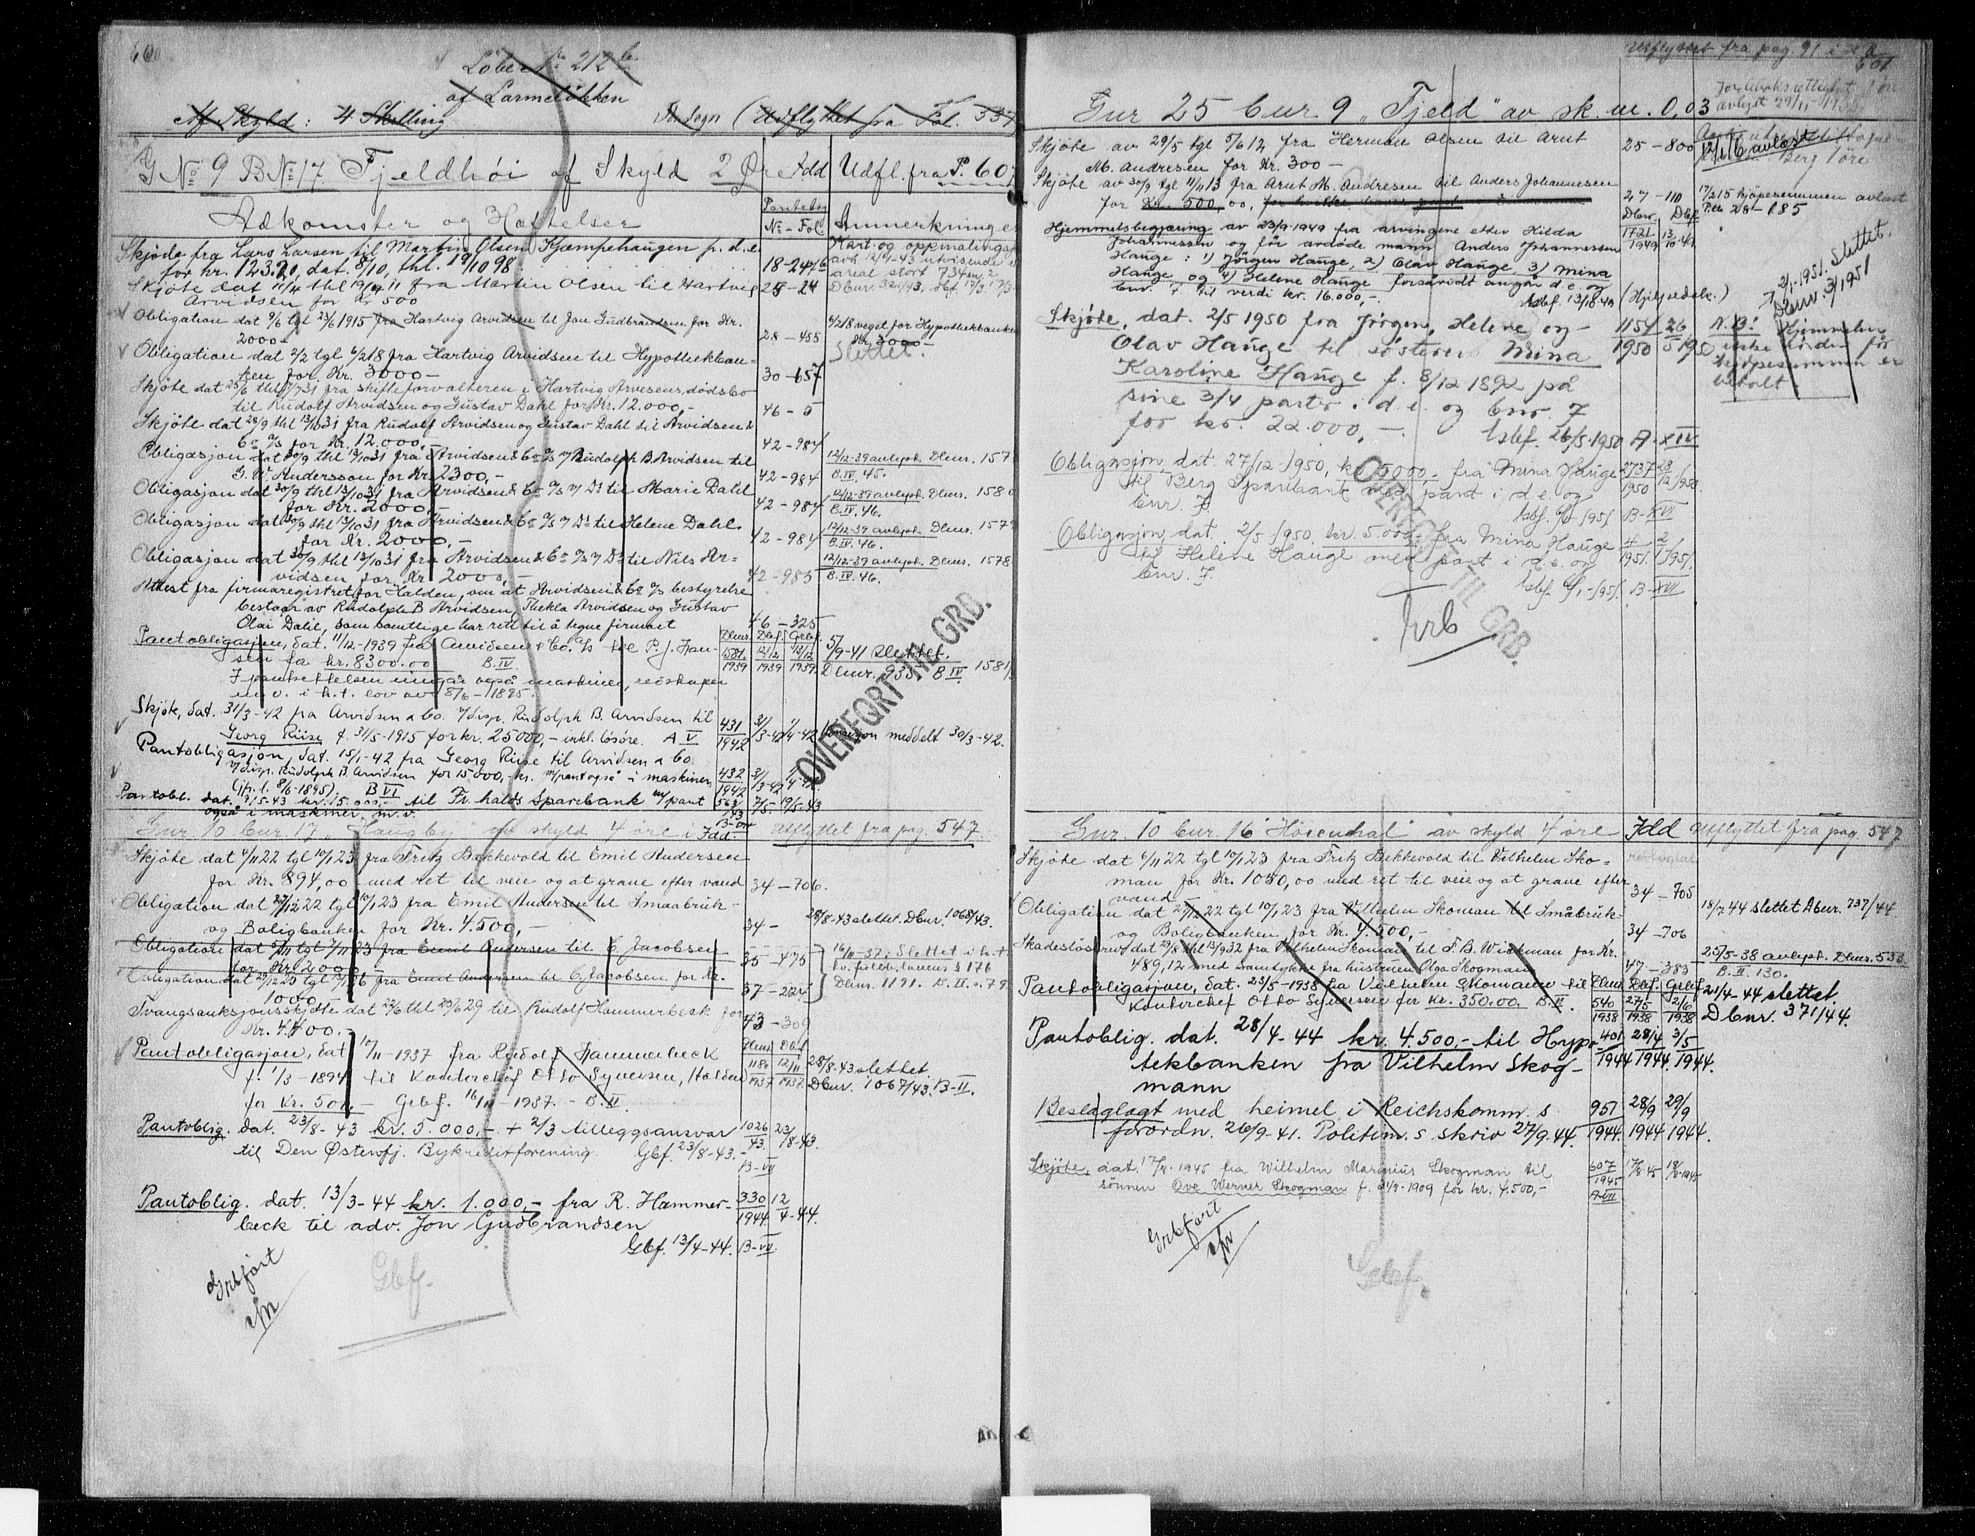 600
Løbe No 212 b
af Larmeløkken
Af Skyld: 4 Skilling Udflyttet fra Fol. 537
G No 9 B No 17 Fjeldhøi af Skyld 2 Øre Idd Udfl. fra P. 607
Adkomster og Heftelser Pantebog No - Fol. Anmerkninger
Skjøde fra Lars Larsen til Martin Olsen Kjæmpehaugen p. d. e.
for kr. 123.20, dat. 8/10, thl. 19/10 98
Skjøte dat 11/4 thl 19/4 11 fra Martin Olsen til Hartvig 25 - 24
Arvidsen for Kr 500
Kart- og oppmålingsf.
avh 12/4-43 utvisende
areal stort 734 m2
Obligation dat 9/6 tgl 23/6 1915 fra Hartvig Arvidsen til Jon Gudbrandsen for Kr. 28 - 455
2000 -
4/2 18 veget for Hypothekbanken
Kr. 3000 -
Slettet.
Obligation dat 2/2 tgl 6/2 18 fra Hartvig Arvidsen til Hypothekban-
ken for Kr. 3000 - 30 - 657
Skjøte dat 25/6 thl 1/7 31 fra skifteforvalteren i Hartvig Arvesens dødsbo
til Rudolf Arvidsen og Gustav Dahl for Kr. 12.000,- 46 - 5
Skjøte dat 28/9 thl 13/10 31 fra Rudolf Arvidsen og Gustav Dahl til Arvidsen &
Co A/S for Kr. 12.000 - 42 - 984
Obligasjon dat 30/9 thl 13/10 31 fra Arvidsen & Co A/S v/ Rudolph B. Arvidsen til
G. W. Andersson for Kr. 2300,- 42 - 984 12/12-39 avlyst. Dbnr. 157
B. IV. 45.
Obligasjon dat 30/9 thl 13/10 31 fra Arvidsen & Co A/S v/ Ds til Marie Dahl
for Kr. 2000,- 42 - 984 12/12-39 avlyst. Dbnr. 1580
B. IV. 46.
Obligasjon dat 30/9 thl 13/10 31 fra Arvidsen & Co A/S v/ Ds til Helene Dahl
for Kr. 2000,- 42 - 984 12/12-39 avlyst. Dbnr. 1579
B. IV. 46.
Obligasjon dat 30/9 thl 13/10 31 fra Arvidsen & Co A/S v/ Ds til Nils Ar-
vidsen for Kr 2000,- 42 - 985 12/12-39 avlyst. Dbnr. 1578
B. IV. 46.
Attest fra firmaregistret for Halden, om at Arvidsen & Co A/S bestyrelse
bestaar av Rudolph B Arvidsen, Thekla Arvidsen og Gustav
Olai Dahl, som samtlige har rett til å tegne firmaet 46 - 325
Dbnr. Dbf. Grbf.
Pantobligasjon, dat. 11/12-1939 fra Arvidsen & Co. A/S til P. J. Han- 1581 1939 12/12 1939 12/12 1939
sen for kr. 8300.00 B. IV
5/9-41 Slettet.
Dbnr. 933. B IV. 1581/3
I pantsettelsen inngår også maskiner, redskaper
m. v. i h.t. lov av 8/6-1895.
Skjøte, dat. 31/3-42 fra Arvidsen & Co. v/ disp. Rudolph B. Arvidsen til 431 1942
Georg Riise f. 31/5-1915 for kr. 25000,- inkl. løsøre. A V meddelt 30/3-42.
Pantobligasjon, dat. 15/1-42 fra Georg Riise til Arvidsen & Co.
v/ disp. Rudolph B. Arvidsen for 15000,- kr. m/ pant også i maskiner 432 1942
(jfr. l. 8/6-1895). B VI
Pantobl. dat. 9/5-43 kr. 15.000,- til Fr.halds Sparebank m/ pant 563 /43 7/5- 19/5-43
også i maskiner, m. v.
OVERFØRT TIL GRB.
Gnr. 10 bnr. 17 Haugby av skyld 4 øre i Idd Utflyttet fra pag. 547
Skjøte dat 4/11 22 tgl 10/1 23 fra Fritz Bekkevold til Emil Andersen
for Kr. 894,00 med ret til veie og at grave efter vand 34 - 706.
Obligation dat 27/12 22 tgl 10/1 23 fra Emil Andersen til Smaabruk-
og Boligbanken for Kr. 4.500,- 34 - 28/8-43 slettet. Dbnr. 1068/43.
Obligation dat 2/11 tgl 7/11 23 fra Emil Andersen til C. Jacobsen
for Kr. 200 - 35 - 475
16/11-37. Slettet i h.t
Obligation dat 29/12 25 tgl 12/1 26 fra Emil Andersen til C. Jacobsen for Kr.
1000 - 37 - 224
Dbnr. 1191. B. II. 79
Tvangsauksjonsskjøte dat 22/6 thl 29/6 29 til Rudolf Hammerbeck for 43 - 309
Kr. 4400.-
Dbnr. Dbf
Pantobligasjon, dat 10/11-1937 fra Rudolf Hammerbeck 1186 1937 12/11 1937
f. 1/3-1894 til Kontorchef Otto Syversen, Halden
for kr. 500,- Grbf. 16/11-1937. - B. II.
28/8-43 slettet.
Dbnr. 1067/43. B-II.
Pantoblig. dat. 23/8-43 kr. 5.000,- + 2/3 tilleggsansvar 1026 43 23/8-43.
til Den Østenfj. Bykreditforening. Gbf. 23/8-43.- B-VII
Pantoblig. dat. 13/3-44 kr. 1.000,- fra R. Hammer- 330 1944 12/4-44.
beck til adv. Jon Gudbrandsen
Gbf. 13/4-44. B-VII
Grbført
Gbf.
Utflyttet fra pag. 91 i
601
Gnr 25 bnr 9 "Fjeld" av sk. m. 0,03
Skjøte av 29/5 tgl 5/6 12 fra Herman Olsen til Arnt 25 - 800
M. Andresen for Kr. 300 -
Skjøte av 30/9 tgl 11/11 13 fra Arnt M. Andresen til Anders Johannesen 27 - 110
for Kr. 500,00,
17/2 15 Kjøpesummen avlæst
Dbnr. Dbf
Hjemmelsbegjæring av 23/9-1949 fra arvingene etter Hilda 1721 1949
Johannessen og før avdøde mann Anders Johannessen
Hauge: 1) Jørgen Hauge, 2) Olav Hauge, 3) Mina
Hauge og 4) Helene Hauge forsåvidt angår d.e. og
bnr. 7 til verdi kr. 16.000,-. (Hjelpedok.)
Skjøte, dat. 2/5 1950 fra Jørgen, Helene og 1154 1950 26/5 1950
Olav Hauge til søsteren Mina
Karoline Hauge f. 8/12 1892 på
sine 3/4 parter i d.e. og bnr. 7
for kr. 22.000,-. Gbf. 26/5-1950 A-XIV
2/1-1951. Slettet.
Dbnr. 3/1951
N. B. Hjemmelen
kjøpesummen er
betalt
Obligasjon, dat. 27/12 1950, kr. 5000,- fra Mina Hauge 2737 1950 28/12 1950.
til Berg Sparebank med pant i d.e. og
bnr. 7. B-XVI
Obligasjon, dat. 2/5 1950, kr. 5.000,- fra Mina Hauge 4 1951. 2/1 1951.
til Helene Hauge med pant i d.e. og
bnr. 7. B-XVI
OVERFØRT TIL GRB.
Grb
Gnr. 10 bnr. 16 "Høienhal" av skyld 4 øre Idd Utflyttet fra pag. 547
Skjøte dat 4/11 22 tgl 10/1 23 fra Fritz Bekkevold til Vilhelm Sko-
man for Kr. 1050,00 med ret til veie og at grave efter 34 - 705
vand
Obligation dat 27/12 22 tgl 10/1 23 fra Vilhelm Skoman til Småbruk-
og Boligbanken for Kr. 4.500,- 34 - 706
18/7 44 slettet Abnr. 737/44
Skadesløsbrev dat 29/8 thl 13/9 32 fra Vilhelm Skoman til F. B. Wickman for Kr.
489,12 med samtykke fra hustruen Olga Skogman 47 - 383
25/5-38 avlyst. Dbnr. 538
B. II. 130.
Dbnr Dbf. Grbf.
Pantobligasjon, dat. 23/5-1938 fra Vilhelm Skomann til 540 1938 27/5 1938 2/6 1938
Kontorchef Otto Syversen for kr. 350.00 B. II.
21/4-44 slettet.
Dbnr. 371/44.
Pantoblig. dat. 28/4-44 kr. 4.500,- til Hypo- 401 1944 28/4 1944 3/5 1944.
tekbanken fra Vilhelm Skog-
mann
Beslaglagt med heimel i Reichskomm. s 951 1944 28/9 1944 29/9 1944.
forordn. 26/9-41. Politim. s skriv 27/9-44.
Skjøte, dat. 17/8-1945 fra Wilhelm Marinius Skogman til 607 1945
sønnen Ove Werner Skogman f. 21/9-1909 for kr. 4.500,- A-VII
Grbført
Gbf.